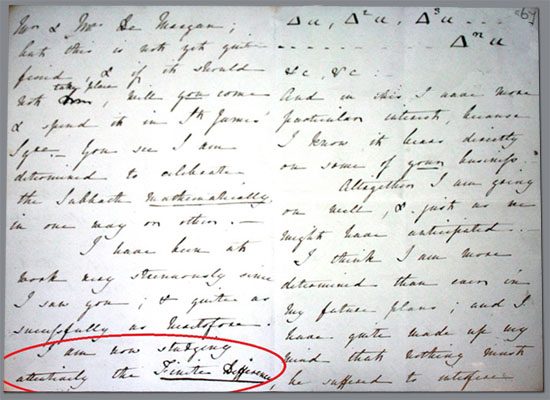 Mr & Mrs De Morgan;
but this is not yet quite
fixed, & if it should
not take place, will you come
& spend it in St James'
Sqre. You see I am
determined to celebrate
the Sabbath mathematically,
in one way or other.—
I have been at
work very strenuously since
I saw you; & quite as
successfully as heretofore.
I am now studying
attentively the Finite Differences,
Δu, Δ²u, Δ³u
Δⁿu
&c, &c
And in this I have more
particular interest, because
I know it bears directly
on some of your business.
Altogether I am going
on well, & just as we
might have anticipated.
I think I am more
determined than ever in
my future plans; and I
have quite made up my
mind that nothing must
be suffered to interfere